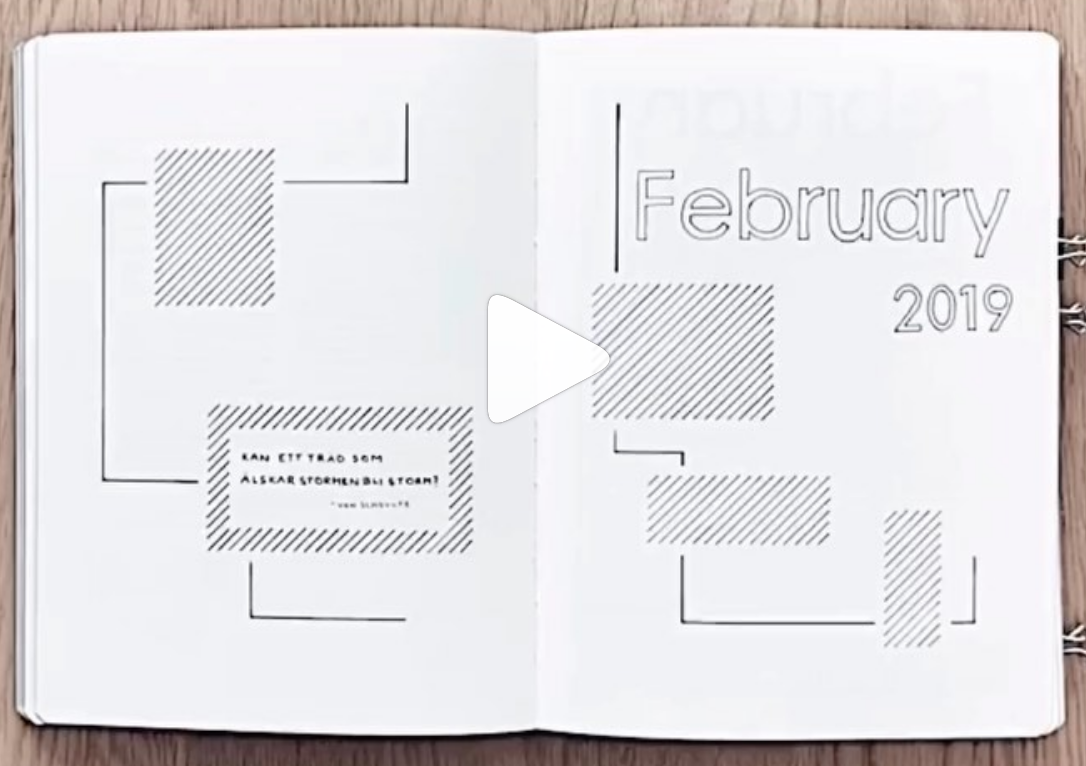 KAN ETT TRÄD SOM
ÄLSKAR STORMEN BLI STORM?
February
2019